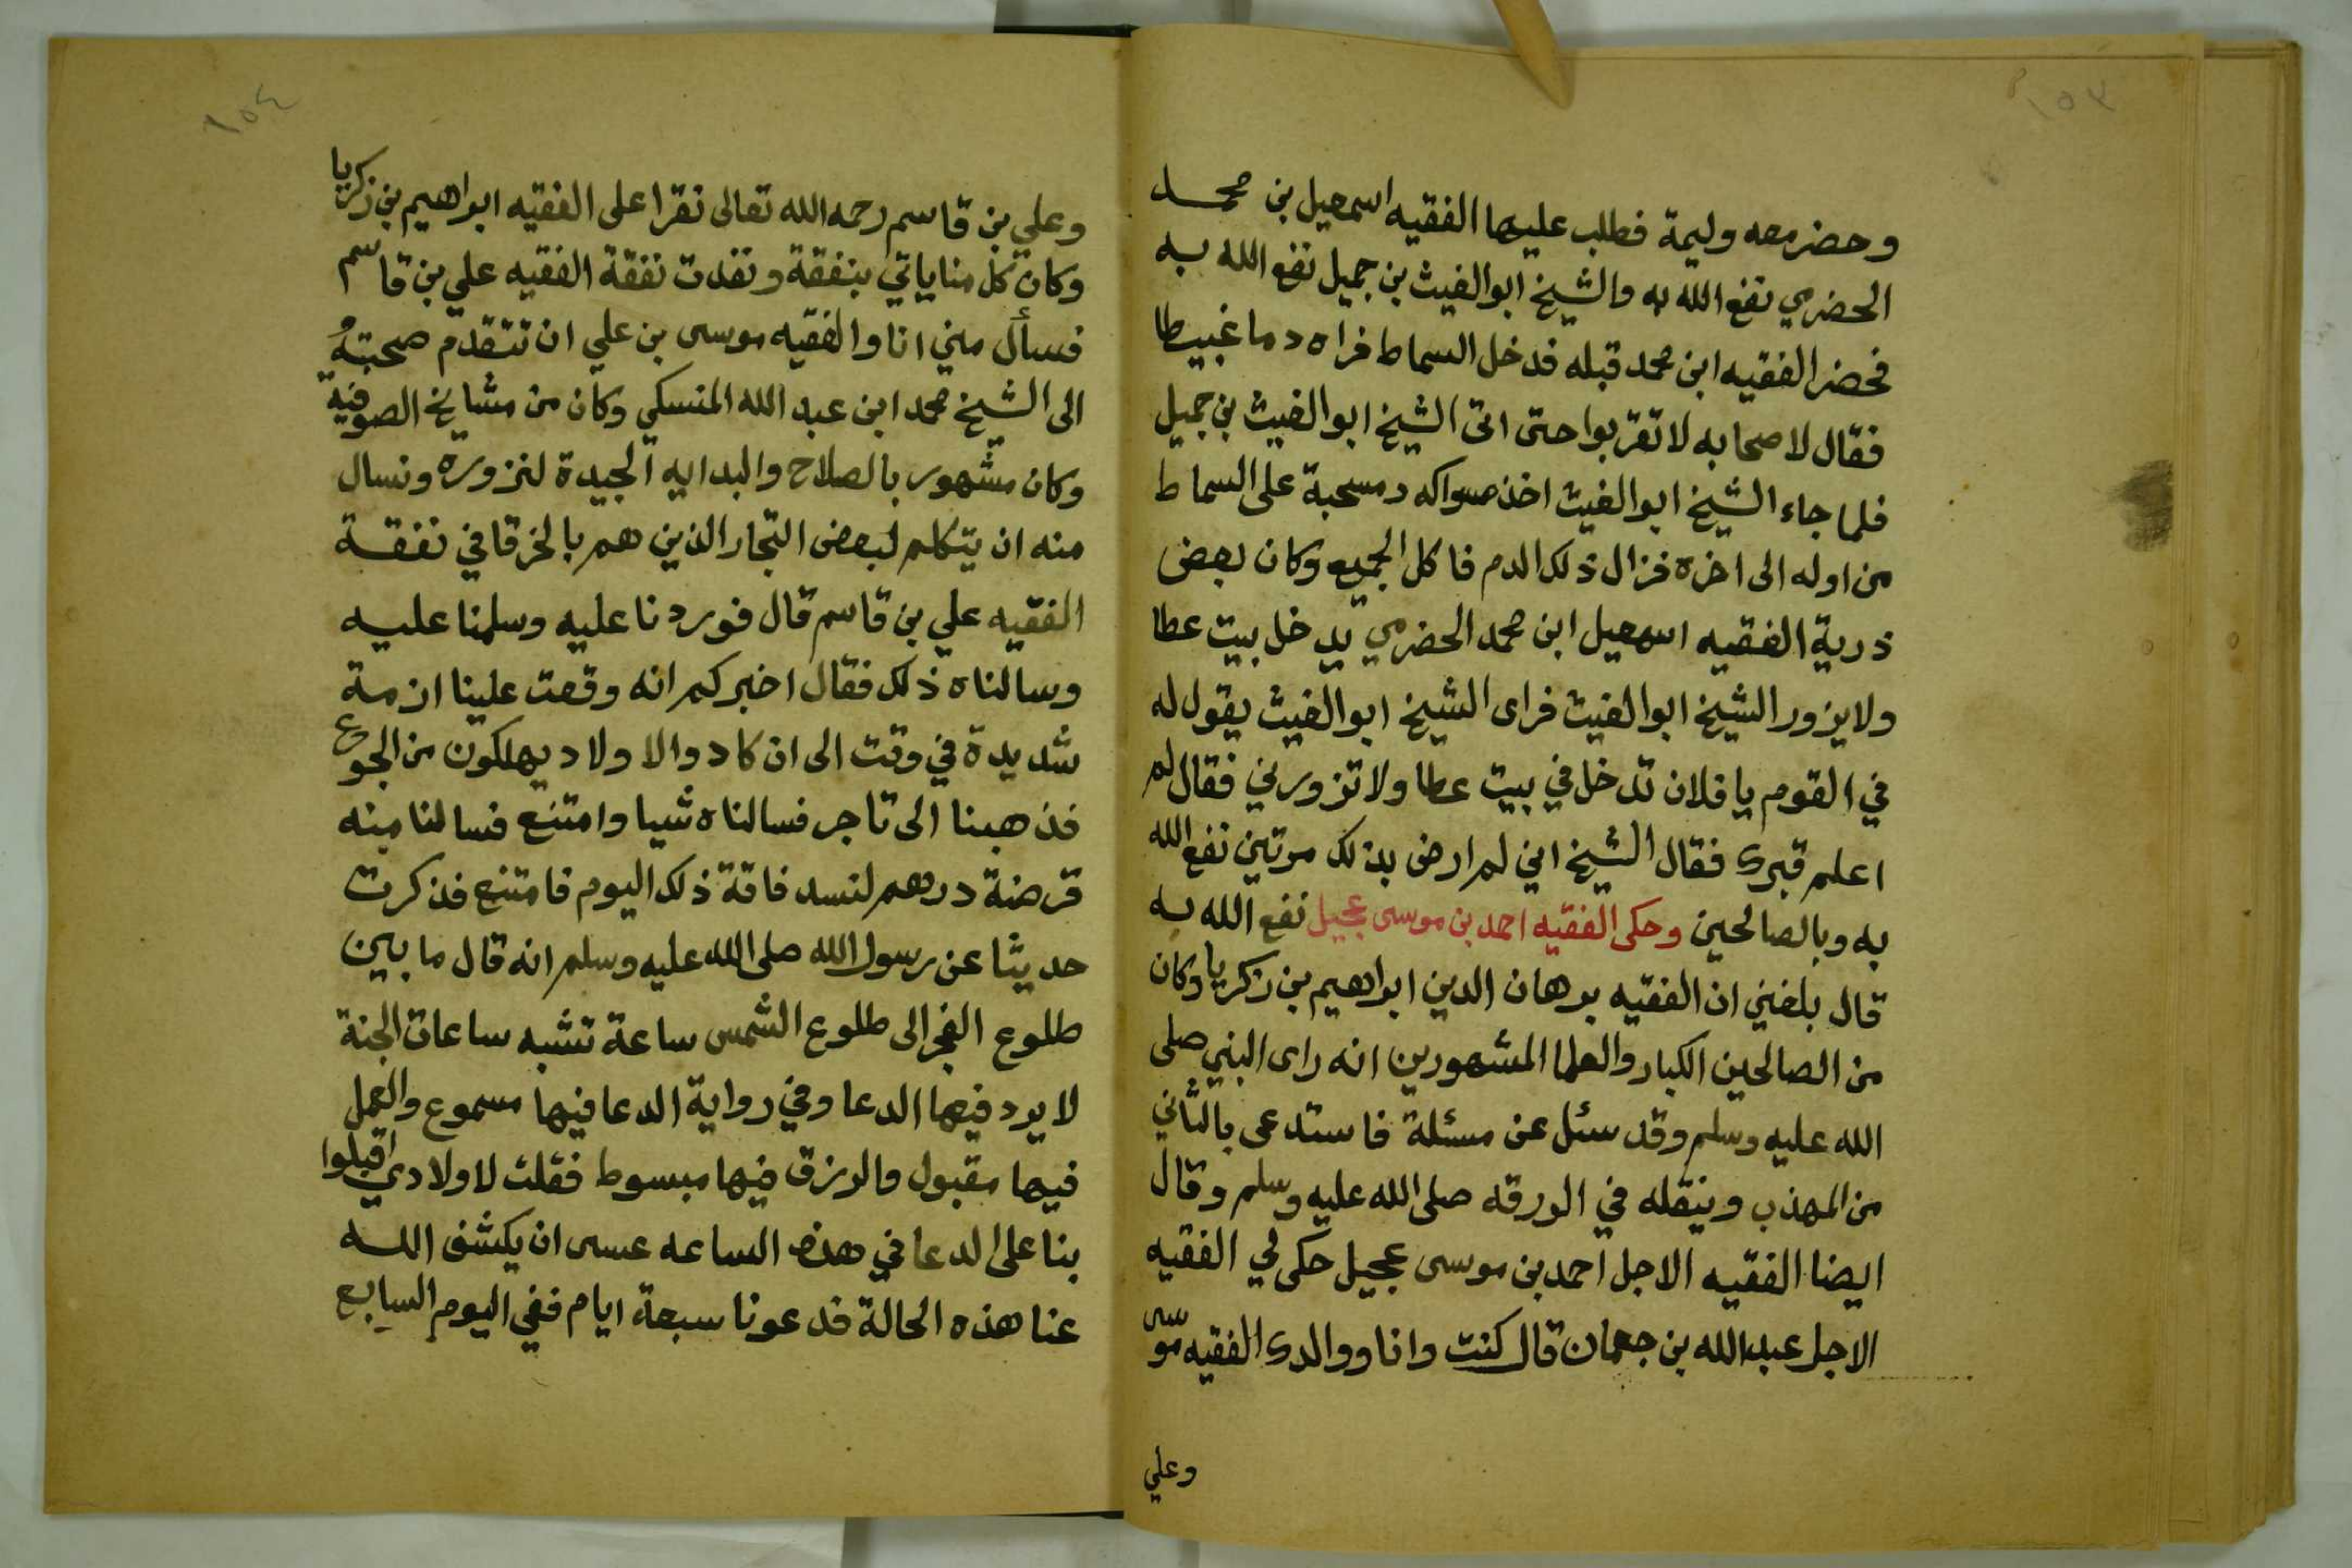 ١٥٣
وحضر معه وليمة فطلب عليها الفقيه اسمعيل بن محمد
الحضرمي نفع الله به والشيخ ابو الغيث بن جميل نفع الله به
فحضر الفقيه ابن محمد قبله فدخل السماط فراه دما غبيطا
فقال لاصحابه لا تقربوا حتى اتى الشيخ ابو الغيث بن جميل
فلما جاء الشيخ ابو الغيث اخذ مسواكه دمسحبة على السماط
من اوله الى اخره فزال ذلك الدم فاكل الجميع وكان بعض
ذرية الفقيه اسمعيل ابن محمد الحضرمي يدخل بيت عطا
ولا يزور الشيخ ابو الغيث فراى الشيخ ابو الغيث يقول له
في القوم يا فلان تدخل في بيت عطا ولا تزورني فقال لم
اعلم قبرى فقال الشيخ اني لم ارض بذلك مرتين نفع الله
به وبالصالحين وحكى الفقيه احمد بن موسى عجيل نفع الله به
قال بلغني ان الفقيه برهان الدين ابراهيم بن زكريا وكان
من الصالحين الكبار والعلما المشهورين انه راى النبي صلى
الله عليه وسلم وقد سئل عن مسئلة فاستدعى بالثاني
من المهذب وينقله في الورقه صلى الله عليه وسلم وقال
ايضا الفقيه الاجل احمد بن موسى عجيل حكى لي الفقيه
الاجل عبد الله بن جعمان قال كنت وانا ووالدى الفقيه موسى
وعلي
١٥٤
وعلي بن قاسم رحمه الله تعالى نقرا على الفقيه ابراهيم بن زكريا
وكان كل منا ياتي بنفقة ونفدت نفقة الفقيه علي بن قاسم
فسأل مني انا والفقيه موسى بن علي ان نتقدم صحبتهُ
الى الشيخ محمد ابن عبد الله المنسكي وكان من مشايخ الصوفية
وكان مشهور بالصلاح والبدايه الجيدة لنزوره ونسال
منه ان يتكلم لبعض التجار الذين هم بالخرقا في نفقة
الفقيه علي بن قاسم قال فوردنا عليه وسلمنا عليه
وسالناه ذلك فقال اخبركم انه وقعت علينا ازمة
شديدة في وقت الى ان كادوا الاولاد يهلكون من الجوع
فذهبنا الى تاجر فسالناه شيا وامتنع فسالنا منه
قرضنة درهم لنسد فاقة ذلك اليوم فامتنع فذكرت
حديثا عن رسول الله صلى الله عليه وسلم انه قال ما بين
طلوع الفجر الى طلوع الشمس ساعة تشبه ساعات الجنة
لا يرد فيها الدعا وفي رواية الدعا فيها مسموع والعمل
فيها مقبول والرزق فيها مبسوط فقلت لاولادي اقبلوا
بنا على الدعا في هذه الساعه عسى ان يكشف الله
عنا هذه الحالة فدعونا سبعة ايام ففي اليوم السابع